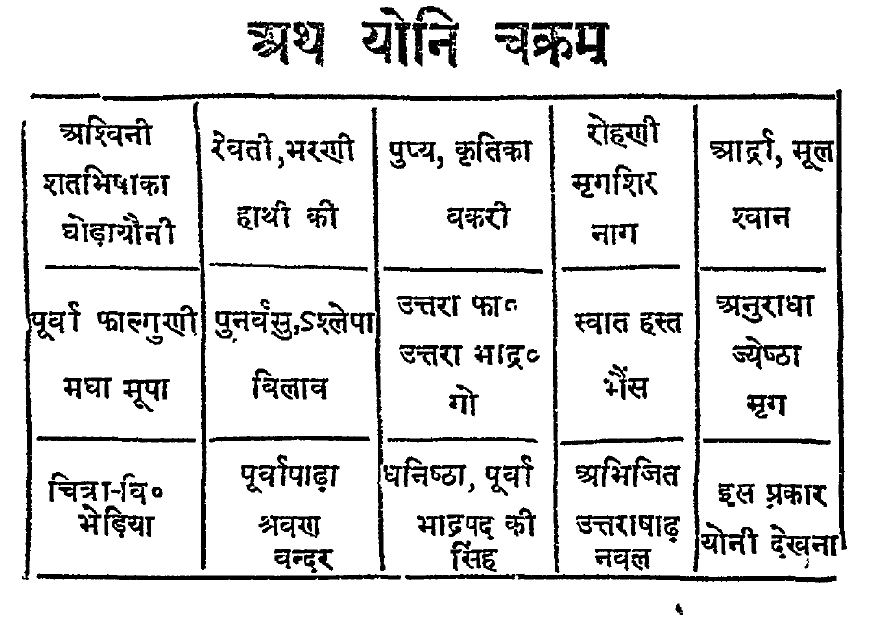 अथ योनि चक्रम
अश्विनी
शतभिषाका
घोड़ायौनी
रेवती,भरणी
हाथी की
पुष्य, कृतिका
वकरी
रोहणी
मृगशिर
नाग
आर्द्रा, मूल
श्वान
पूर्वा फाल्गुणी
मघा मूषा
पुनर्वसु,ऽश्लेषा
विलाव
उत्तरा फा०
उत्तरा भाद्र०
गो
स्वात हस्त
भैंस
अनुराधा
ज्येष्ठा
मृग
चित्रा-वि०
भेड़िया
पूर्वाषाढ़ा
श्रवण
वन्दर
धनिष्ठा, पूर्वा
भाद्रपद की
सिंह
अभिजित
उत्तराषाढ़
नवल
इस प्रकार
योनी देखना